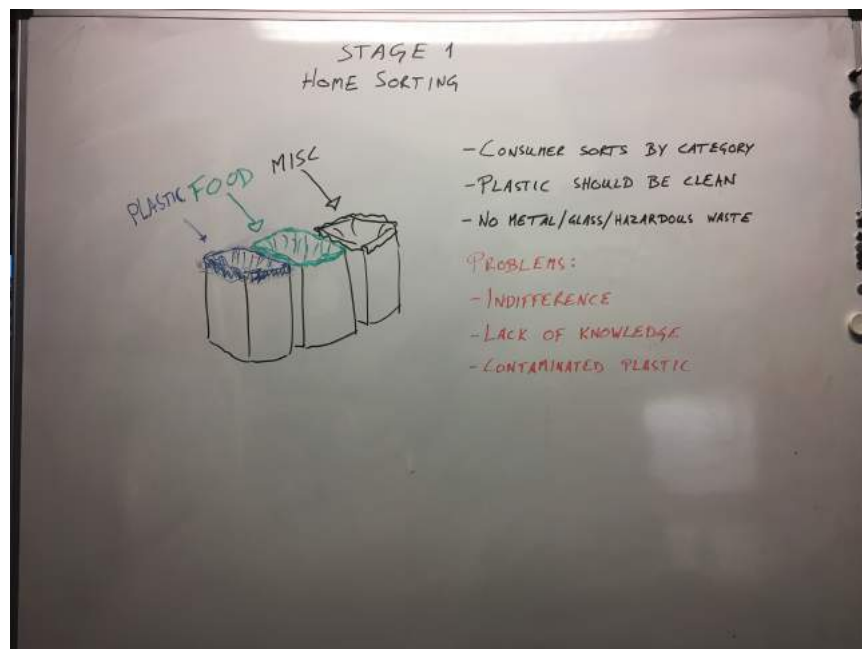 STAGE 1
HOME SORTING
PLASTIC
FOOD
MISC
- CONSUMER SORTS BY CATEGORY
- PLASTIC SHOULD BE CLEAN
- NO METAL/GLASS/HAZARDOUS WASTE
PROBLEMS:
- INDIFFERENCE
- LACK OF KNOWLEDGE
- CONTAMINATED PLASTIC